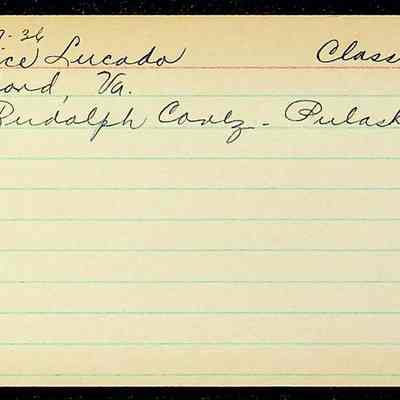 7-36
ice Lucado Class
ord, Va.
Rudolph Covez - Pulask